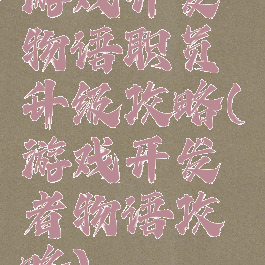 游戏开发
物语职员
升级攻略(
游戏开发
者物语攻
略)